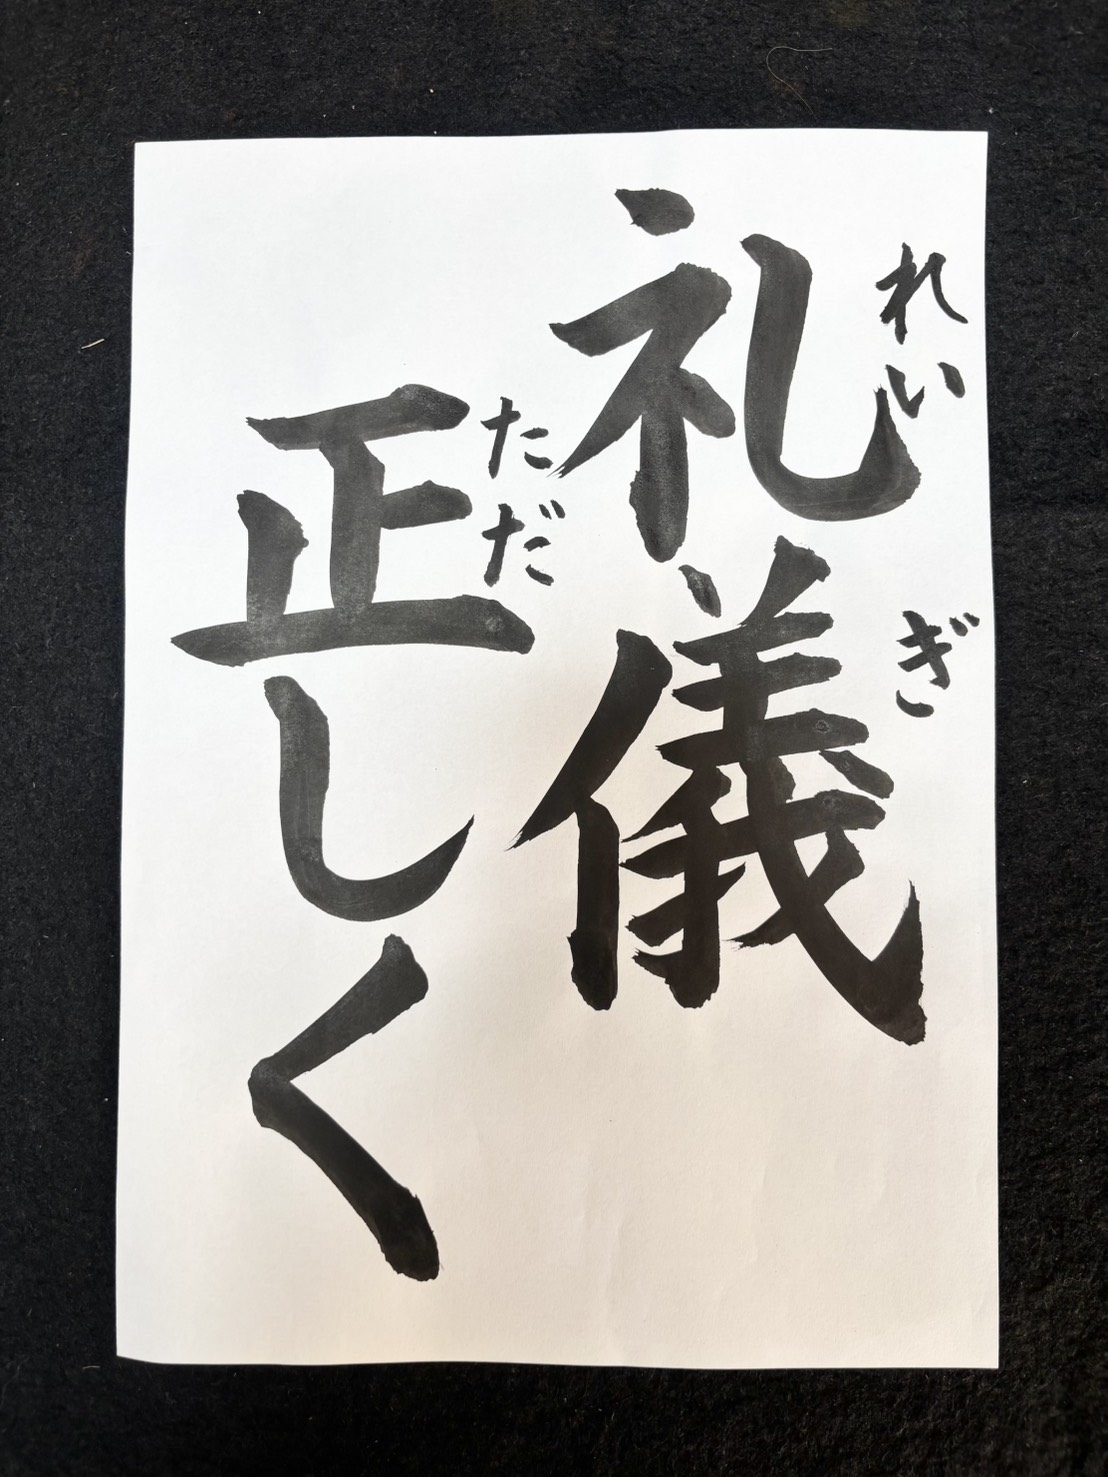 礼儀
れいぎ
正しく
ただ